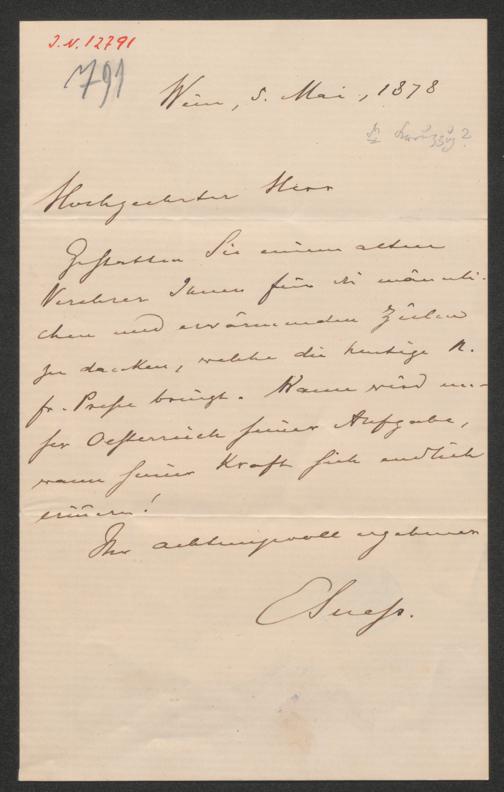 J.N. 12791
791
Wien, 5. Mai, 1878
Hochgeehrter Herr
Gestatten Sie einem alten
Verehrer Ihnen für die männli-
chen und erwärmenden Zeilen
zu danken, welche die heutige N.
fr. Presse bringt. Wann wird un-
ser Oesterreich seiner Aufgabe,
wann seiner Kraft sich endlich
erinnern!
Ihr achtungsvoll ergebener
ESuess.